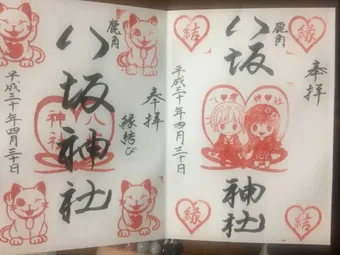 奉拝
縁
結
鹿角
八坂神社
八坂
神社
平成三十年四月三十日
縁
結
奉拝
縁結び
鹿角
八坂神社
八坂
神社
平成三十年四月三十日